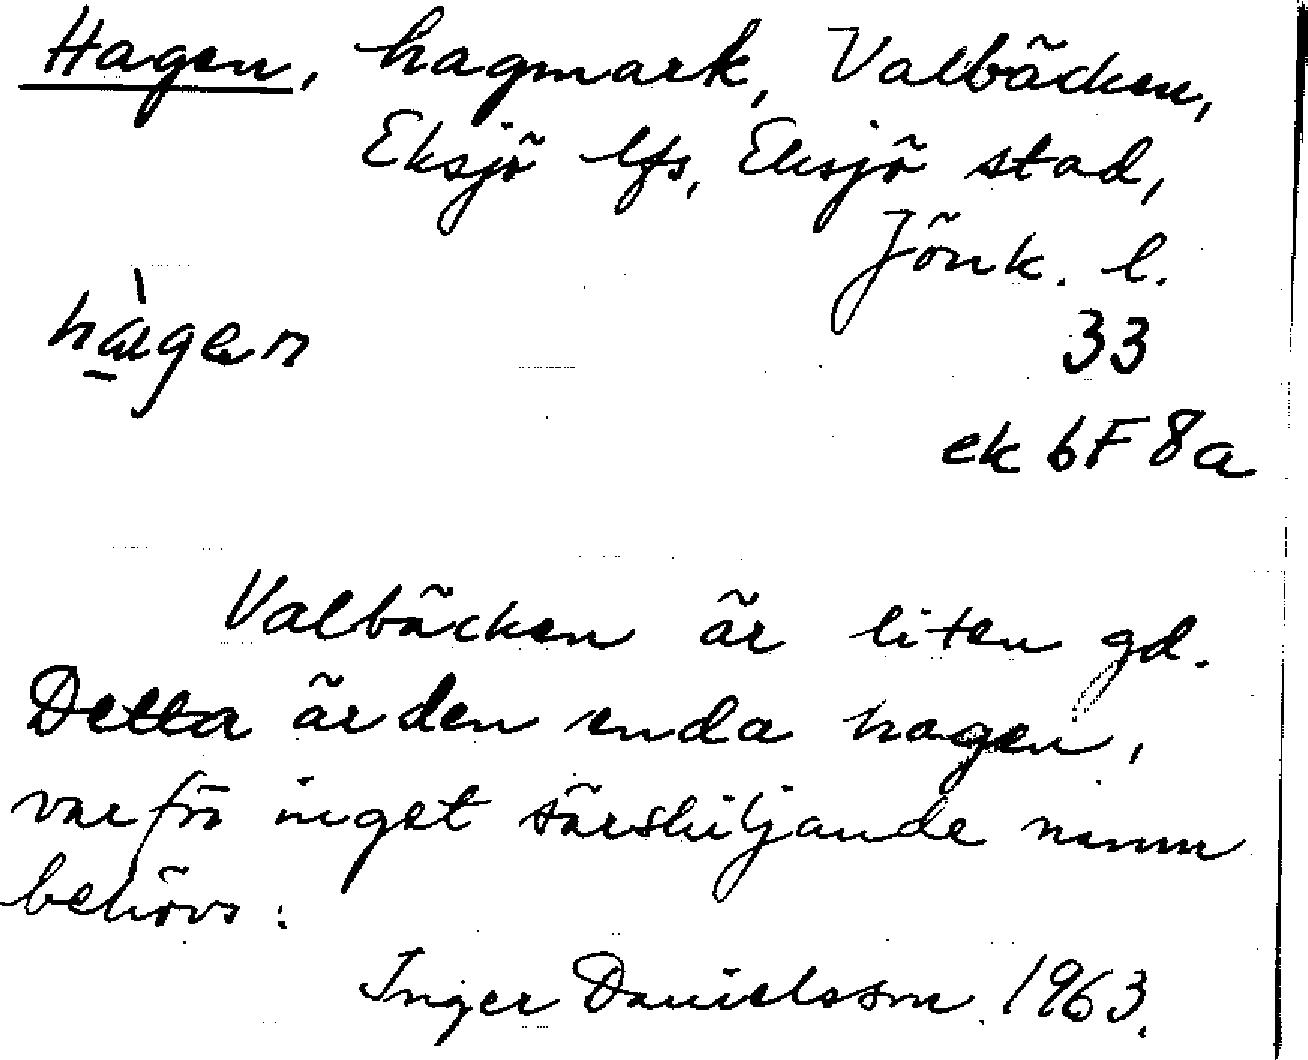 Hagen, hagmark, Valbäcken,
Eksjö lfs, Eksjö stad,
Jönk. l.
hàgen
33
ek 6F8a
Valbäcken är liten gd.
Detta är den enda hagen,
varför inget särskiljande namn
behövs.
Inger Danielsson 1963.